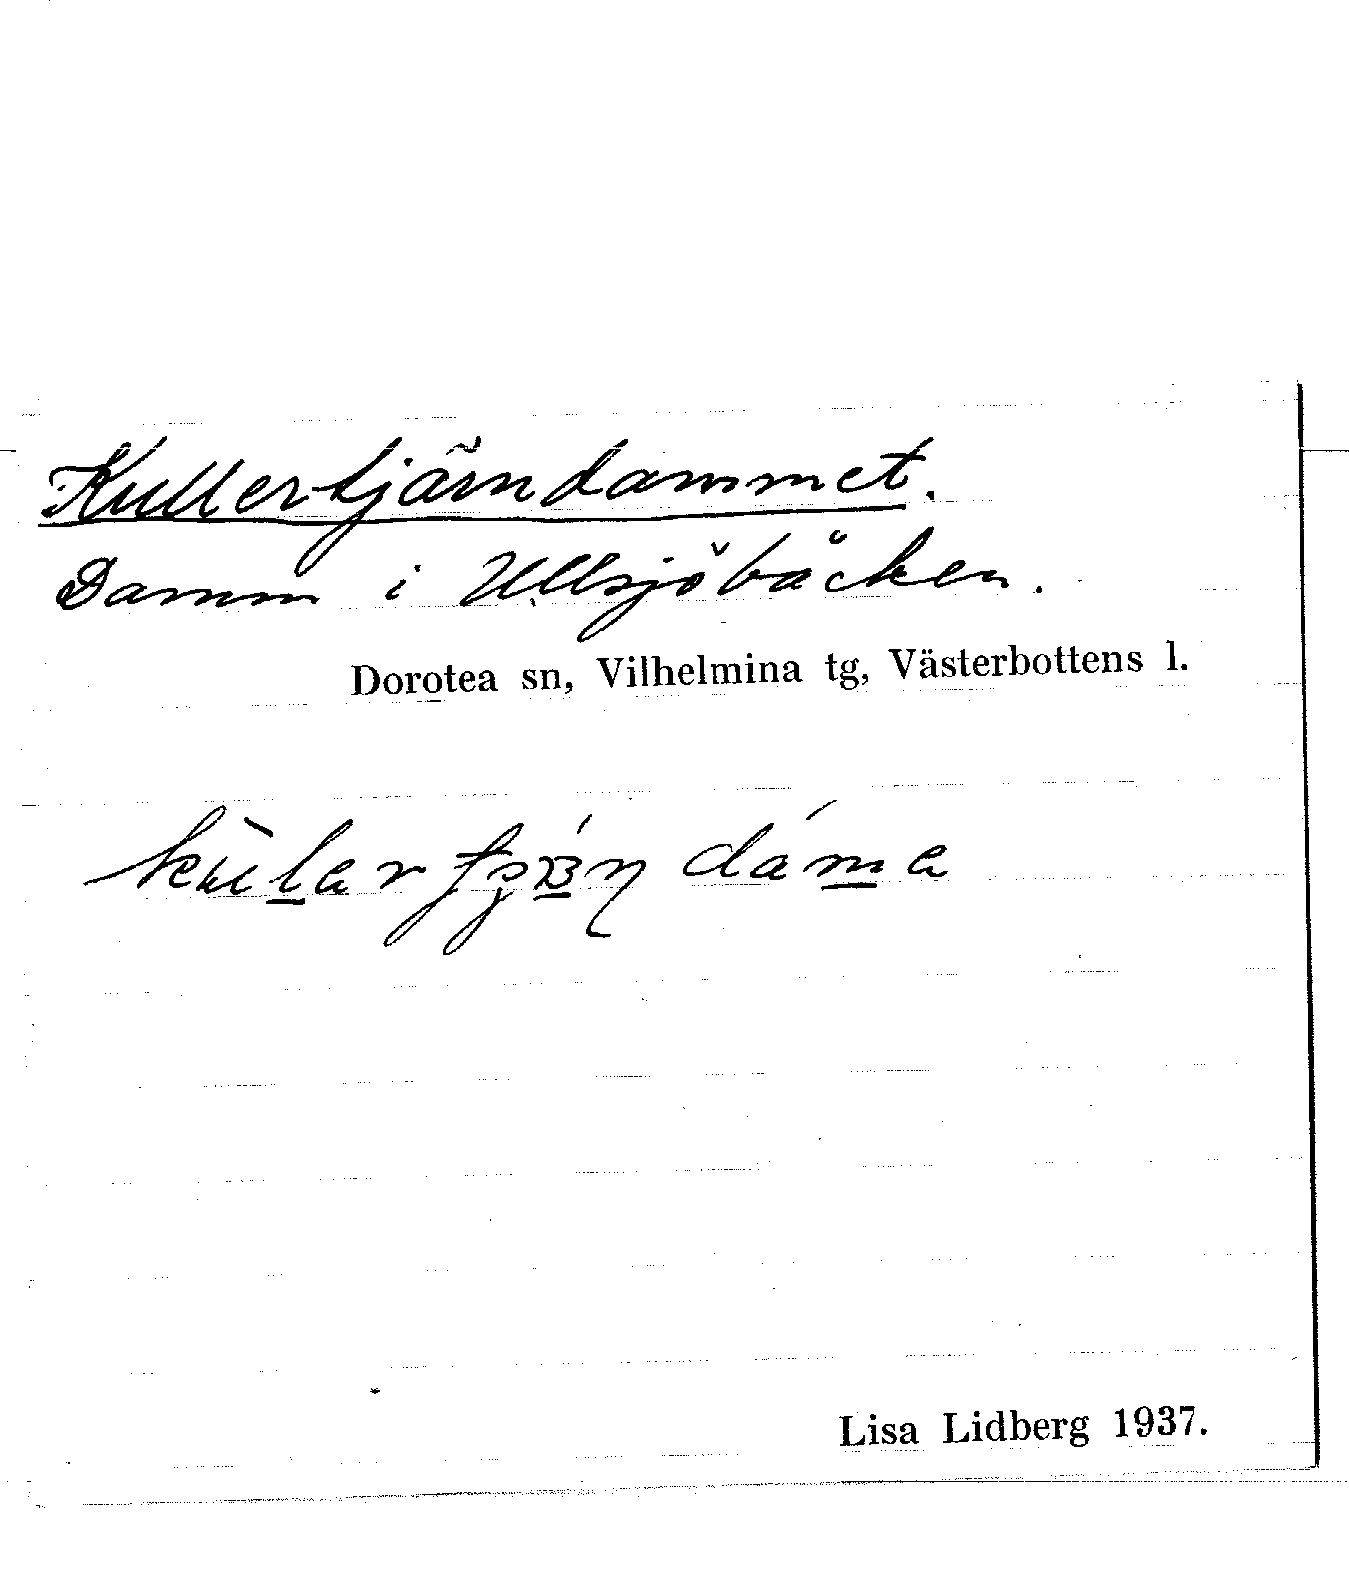 Kullertjärndammet.
Damm i Ullsjöbäcken.
Dorotea sn, Vilhelmina tg, Västerbottens l.
Lisa Lidberg 1937.